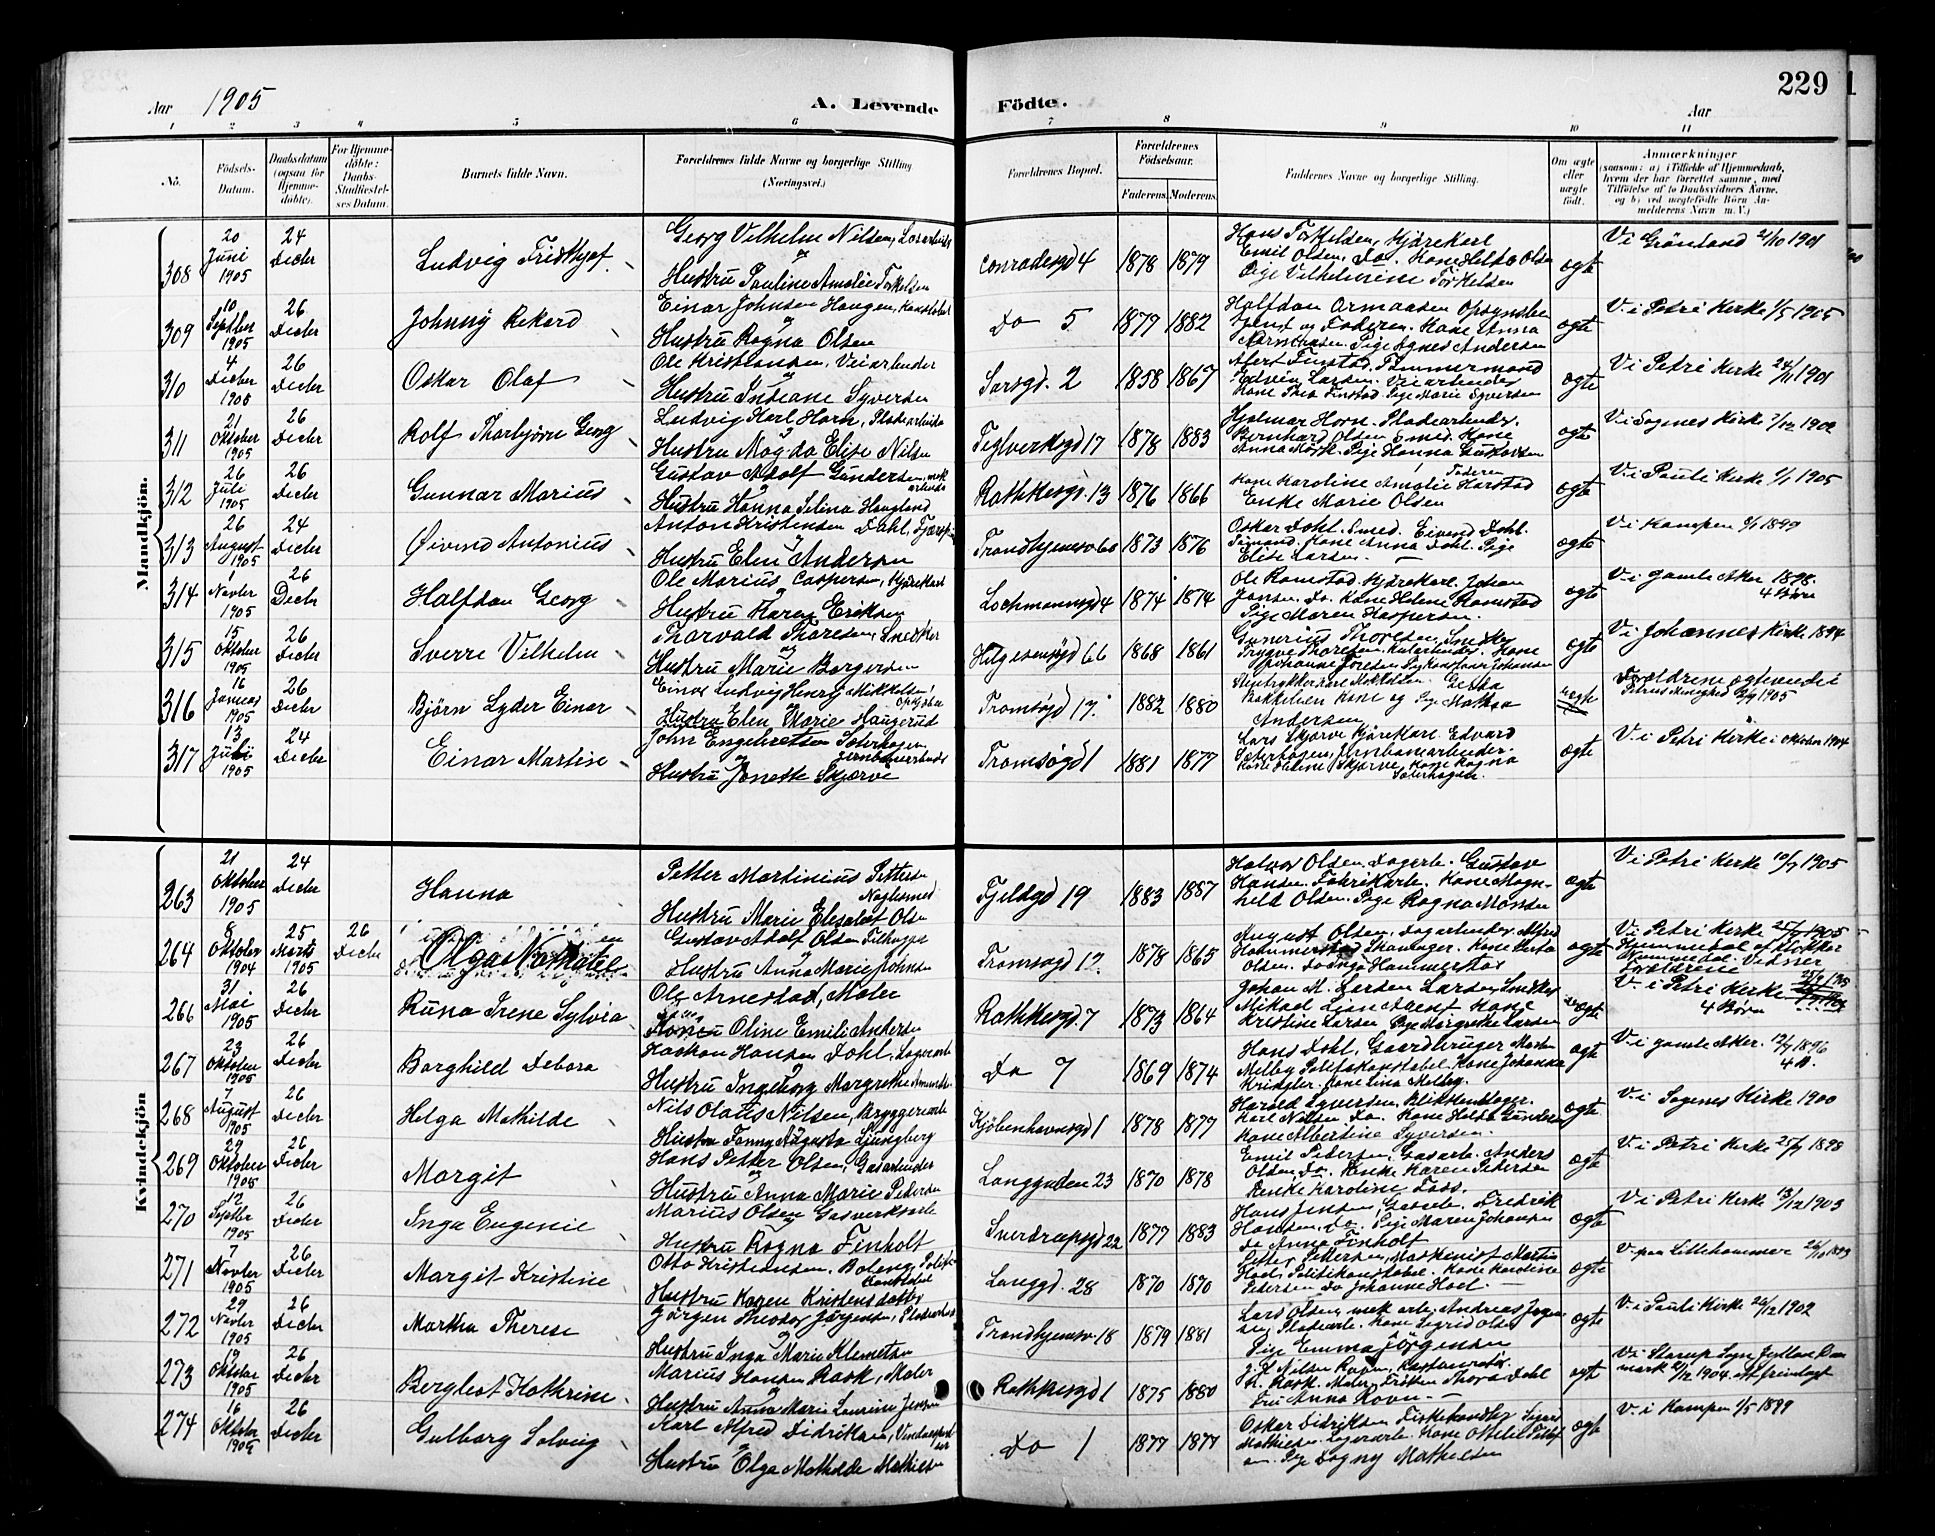 229
Aar 1905
A. Levende
Födte.
Aar
1 2 3 4 5 6 7 8 9 10 11
No.
Födsels-Datum.
Daabsdatum (ogsaa for Hjemmedöbte).
For Hjemmedöbte: Daabs-Stadfæstelses Datum.
Barnets fulde Navn.
Forældrenes fulde Navne og borgerlige Stilling (Næringsvei.)
Forældrenes Bopæl.
Forældrenes Födselsaar.
Faderens. Moderens.
Faddernes Navne og borgerlige Stilling.
Om ægte eller uægte födt.
Anmærkninger
(saasom: a) i Tilfælde af Hjemmedaab, hvem der har forrettet samme, med Tilföielse af to Daabsvidners Navne, og b) ved uægtefödte Börn Anmelderens Navn m. V.)
Mandkjön.
308 20 Juni 1905 24 Decbr Ludvig Fridthjof
Georg Vilhelm Nilsen,
Hustru Pauline Amalie Torkelsen
Conradesgd 4 1878 1879
Hans Torkildsen, Kjörekarl
Emil Olsen, Do. Kone Hilda Olsen
Pige Vilhelmine Torkelsen
ægte V i Grönland 2/10 1901
309 10 Septber 1905 26 Decbr Johnny Rekord
Einar Johnsen Haugen, Konstabel
Hustru Ragna Olsen
Do 5 1879 1882
Halfdan Ormaasen
og Faderen. Kone Anna
Pige Agnes Andersen
ægte V i Petri Kirke 1/5 1905
310 4 Decbr 1905 26 Decbr Oskar Olaf
Ole Kristiansen, Veiarbeider
Hustru Indiane Syversen
Sarsgd. 2 1858 1867
Tömmermand
Edvin Larsen. Veiarbeider
Pige Marie Syversen
ægte V i Petri Kirke 24/11 1901
311 21 Oktober 1905 26 Decbr Rolf Thorbjörn Georg
Ludvig Karl Horn, Pladsarbeider
Hustru Magda Elise Nilsen
Teglverksgd 17 1878 1883
Hjalmar Horn. Pladsarbeider.
Bernhard Olsen Smed. Kone
Anna Mörk. Pige Hanna Gustavsen
ægte V i Sagenes Kirke 7/12 1902
312 26 Juli 1905 26 Decbr Gunnar Marius
Gustav Adolf Gundersen, mek arbeider
Hustru Hanna Selina Haugland
Rathkesgd. 13 1876 1866
Faderen
Kone Karoline Amalie Harstad
Enke Marie Olsen
ægte V i Pauli Kirke 1/1 1905
313 26 August 1905 24 Decbr Øivind Antonius
Anton Kristensen Dahl,
Hustru Elen Andersen
Trondhjemsv 60 1873 1876
Oskar Dahl. Smed. Eivind Dahl.
Sömand. Kone Anna Dahl. Pige
Elise Larsen.
ægte V i Kampen 9/1 1899
314 1 Novbr 1905 26 Decbr Halfdan Georg
Ole Marius Caspersen, Kjörekarl
Hustru Karen Eriksen
Lochmannsgd 4 1874 1874
Ole Ramstad Kjörekarl. Johan
Jansen Do. Kone Helene Ramstad
Pige Maren Kaspersen.
ægte V i Gamle Aker 1898. 4 Börn
315 15 Oktober 1905 26 Decbr Sverre Vilhelm
Thorvald Thoresen, Snedker
Hustru Marie Borgersen
Helgesensgd 66 1868 1861
Gunerius Thoresen, Snedker
Trygve Thoresen. Kone
ægte V i Johannes Kirke 1894
316 16 Januar 1905 26 Decbr Björn Lyder Einar
Einar Ludvig Henry Mikkelsen,
Hustru Elen Marie Haugerud
Tromsögd 17. 1882 1880
Bakkelien Kone og Pige Mathea
Andersen
uægte Forældrene ægteviede i
Petrus Menighed 1905
317 13 Juli 1905 24 Decbr Einar Martin
John Engebretsen Sæterhagen
Jernbanearbeider
Hustru Jonette Skjærve
Tromsögd 1 1881 1877
Lars Skjærve Kjörekarl Edvard
Sæterhagen, Jernbanearbeider.
Kone Helene Skjærve, Kone Ragna
Sæterhagen.
ægte V. i Petri Kirke i Oktober 1904
Kvindekjön
263 21 Oktober 1905 24 Decbr Hanna
Petter Martinius Pettersen
Naglesmed
Hustru Marie Elisabet Olsen
Fjeldgd 19 1883 1887
Halvor Olsen, Dagarb. Gustav
Hansen. Fabrikarb. Kone Magnhild
Olsen. Pige Ragna Monsen
ægte V i Petri Kirke 10/7 1905
264 8 Oktober 1904 25 Marts 1905 26 Decbr Olga
Gustav Adolf Olsen Filhugger
Hustru Anna Marie Johnsen
Tromsögd 17. 1878 1865
August Olsen, Dagarbeider. Alfred
Hammerstad Skomager. Kone Berta
Olsen. Hammerstad
ægte V i Petri Kirke 1905
Hjemmedöbt af
Vidner
Forældrene
266 31 Mai 1905 26 Decbr Runa Irene Sylvia
Ole Arnestad, Maler
Oline Emilie Andersen
Rathkesgd 7 1873 1864
Johan M. Larsen Snedker
Mikael Lian Kone
Kristine Larsen Pige Margrethe Larsen
uægte V. i Petri Kirke
4 Börn
267 23 Oktober 1905 26 Decbr Borghild Debora
Haakon Hansen Dahl, Lagerarb
Hustru Ingeborg Margrethe Amundsen
Do 7 1869 1874
Hans Dahl, Gaardbruger Martin
Melby Politikonstabel. Kone Johanna
Kringler. Kone Lina Melby.
ægte V i Gamle Aker. 12/7 1896
268 7 August 1905 26 Decbr Helga Mathilde
Nils Olaus Nilsen, Bryggeriarb
Hustru Fanny Augusta Ljungberg
Kjöbenhavnsgd 1 1878 1877
Harald Syversen, Blikkenslager.
Karl Nilsen Do. Kone Hilda Gundersen
Kone Albertine Syversen.
ægte V i Sagenes Kirke 1900
269 29 Oktober 1905 26 Decbr Margit
Hans Petter Olsen, Gasarbeider
Hustru Anna Marie Pedersen
Langgaden 23 1870 1878
Emil Pedersen, Gasarb. Anders
Olsen Do. Enke Karen Pedersen
Enke Karoline Foss.
ægte V i Petri Kirke 25/9 1898
270 12 Septbr 1905 26 Decbr Inga Eugenie
Marius Olsen Gasverksarb
Hustru Ragna Finholt
Sverdrupsgd 22 1877 1883
Hans Jensen, Gasarb. Fredrik
Hansen, Do. Pige Maren Johansen
Do Anna Finholt
ægte V i Petri Kirke 13/12 1903
271 7 Novbr 1905 26 Decbr Margit Kristine
Otto Kristiansen Boleng, Politikonstabel
Hustru Karen Kristensdatter
Langgd. 28 1870 1870
Petter Pettersen, Maskinist Martin
Hoel Politikonstabel. Kone Karoline
Petersen Do Johanne Hoel
ægte V. paa Lillehammer 1893
272 29 Novbr 1905 26 Decbr Martha Therese
Jörgen Theodor Jörgensen, Pladsarbeider
Hustru Inga Marie Klemetsen
Trondhjemsv 18 1879 1881
Lars Olsen, mek arb. Andreas Jörgensen,
Pladsarb. Kone Sigrid Olsen
Pige Emma Jörgensen
ægte V. i Pauli Kirke 20/12 1902
273 19 Oktober 1905 26 Decbr Berglest Kathrine
Marius Hansen Rask, Maler
Hustru Anna Marie Laurine Jensen
Rathkesgd 1 1875 1880
Rask. Maler, Fröken Thora Dahl
Fru Anna Ravn
ægt V i Starup Sogn Jylland Danmark 1904.
274 16 Oktober 1905 26 Decbr Gulborg Solveig
Karl Alfred Didriksen,
Hustru Olga Mathilde Mathisen
Do 1 1877 1877
Oskar Didriksen Fiskehandler Sigurd
Mathisen. Lagerarb. Kone
Pige Dagny Mathilsen
ægt V. i Kampen 1/5 1899